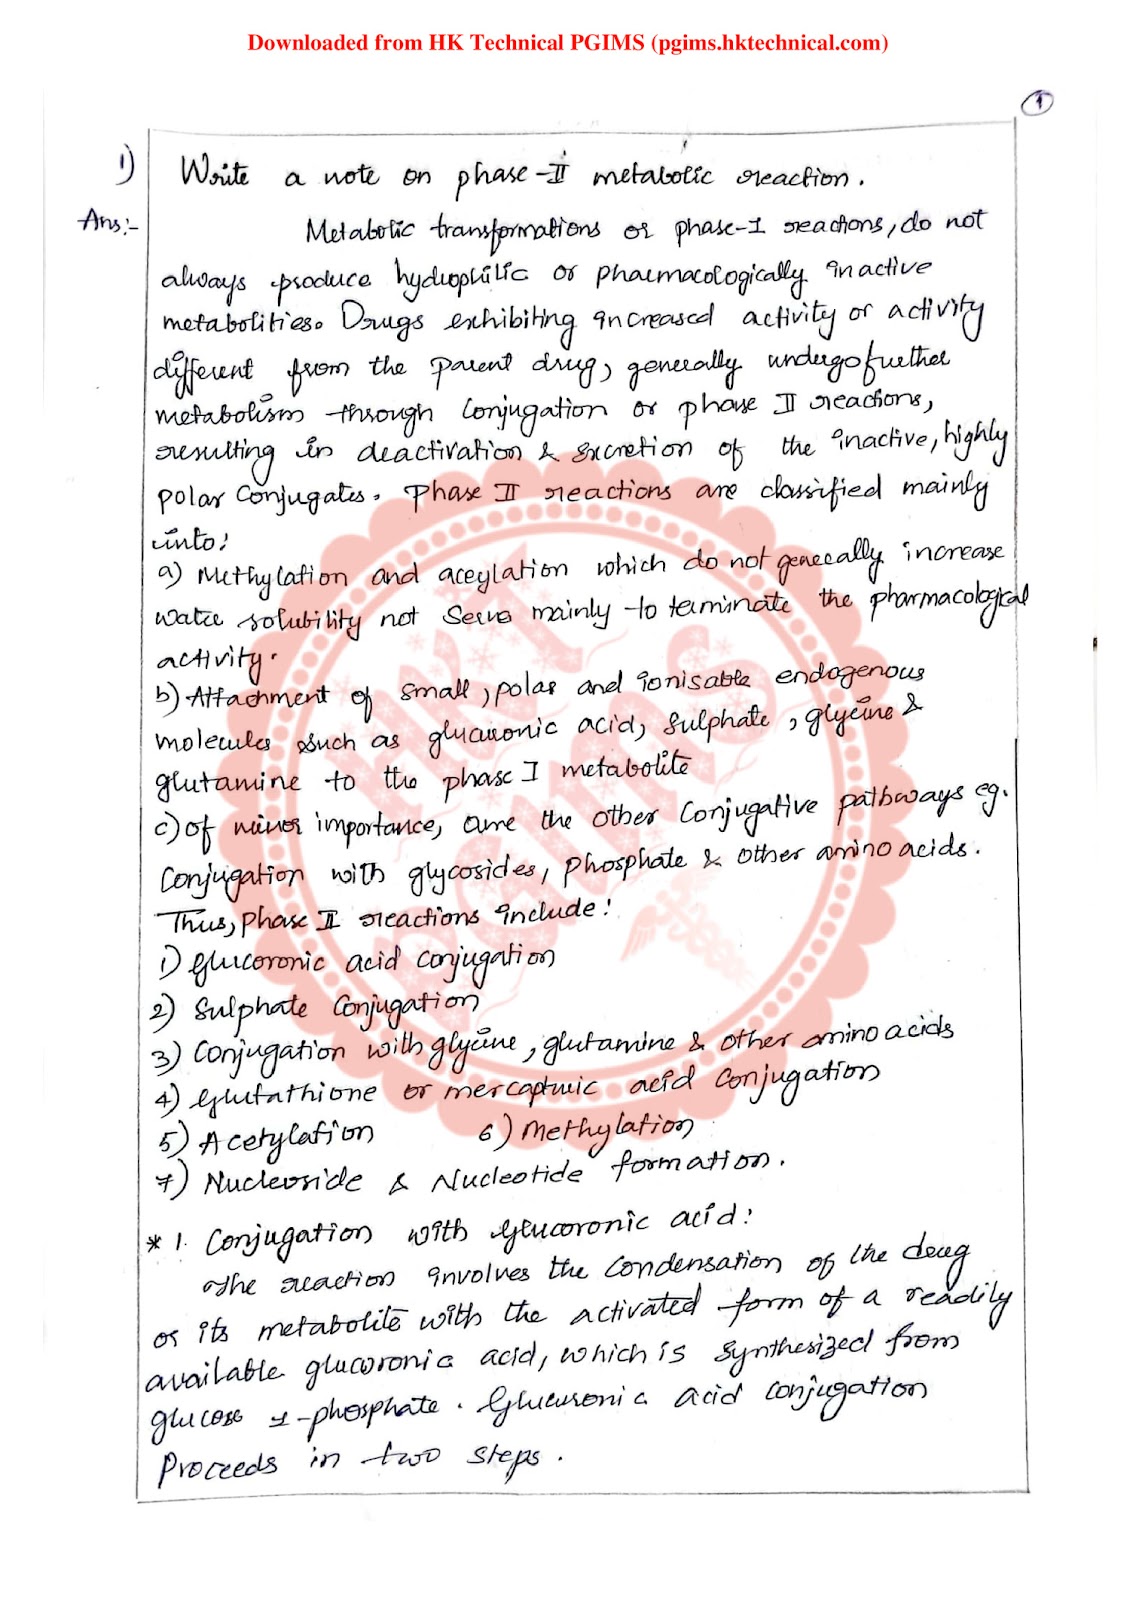 Downloaded from HK Technical PGIMS (pgims.hktechnical.com)
1
1) Write a note on phase-II metabolic reaction.
Ans:- Metabolic transformations or phase-I reactions, do not
always produce hydrophilic or pharmacologically inactive
metabolities. Drugs exhibiting increased activity or activity
different from the parent drug, generally undergo further
metabolism through Conjugation or phase II reactions,
resulting in deactivation & excretion of the inactive, highly
polar Conjugates. Phase II reactions are classified mainly
into:
a) Methylation and aceylation which do not generally increase
water solubility not Serve mainly to terminate the pharmacological
activity.
b) Attachment of small, polar and ionisable endogenous
molecules such as glucuronic acid, Sulphate, glycine &
glutamine to the phase I metabolite
c) of minor importance, are the other Conjugative pathways eg.
Conjugation with glycosides, phosphate & other amino acids.
Thus, phase II reactions include:
1) Glucoronic acid conjugation
2) Sulphate Conjugation
3) Conjugation with glycine, glutamine & other amino acids
4) Glutathione or mercapturic acid Conjugation
5) Acetylation 6) Methylation
7) Nucleoside & Nucleotide formation.
* 1. Conjugation with Glucoronic acid:
The reaction involves the Condensation of the drug
or its metabolite with the activated form of a readily
available glucoronic acid, which is synthesized from
glucose 1-phosphate. Glucuronic acid conjugation
Proceeds in two steps.
HKT
PGIMS